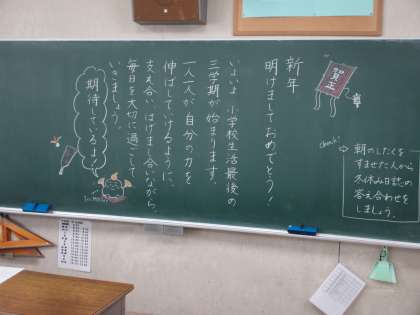 賀正
新年
明けましておめでとう!
いよいよ小学校生活最後の
三学期が始まります。
一人一人が自分の力を
伸ばしていけるように、
支え合い、はげまし合いながら、
毎日を大切に過ごして
いきましょう。
期待しているよ!
check!
朝のしたくを
すませた人から
冬休み日誌の
答え合わせを
しましょう。